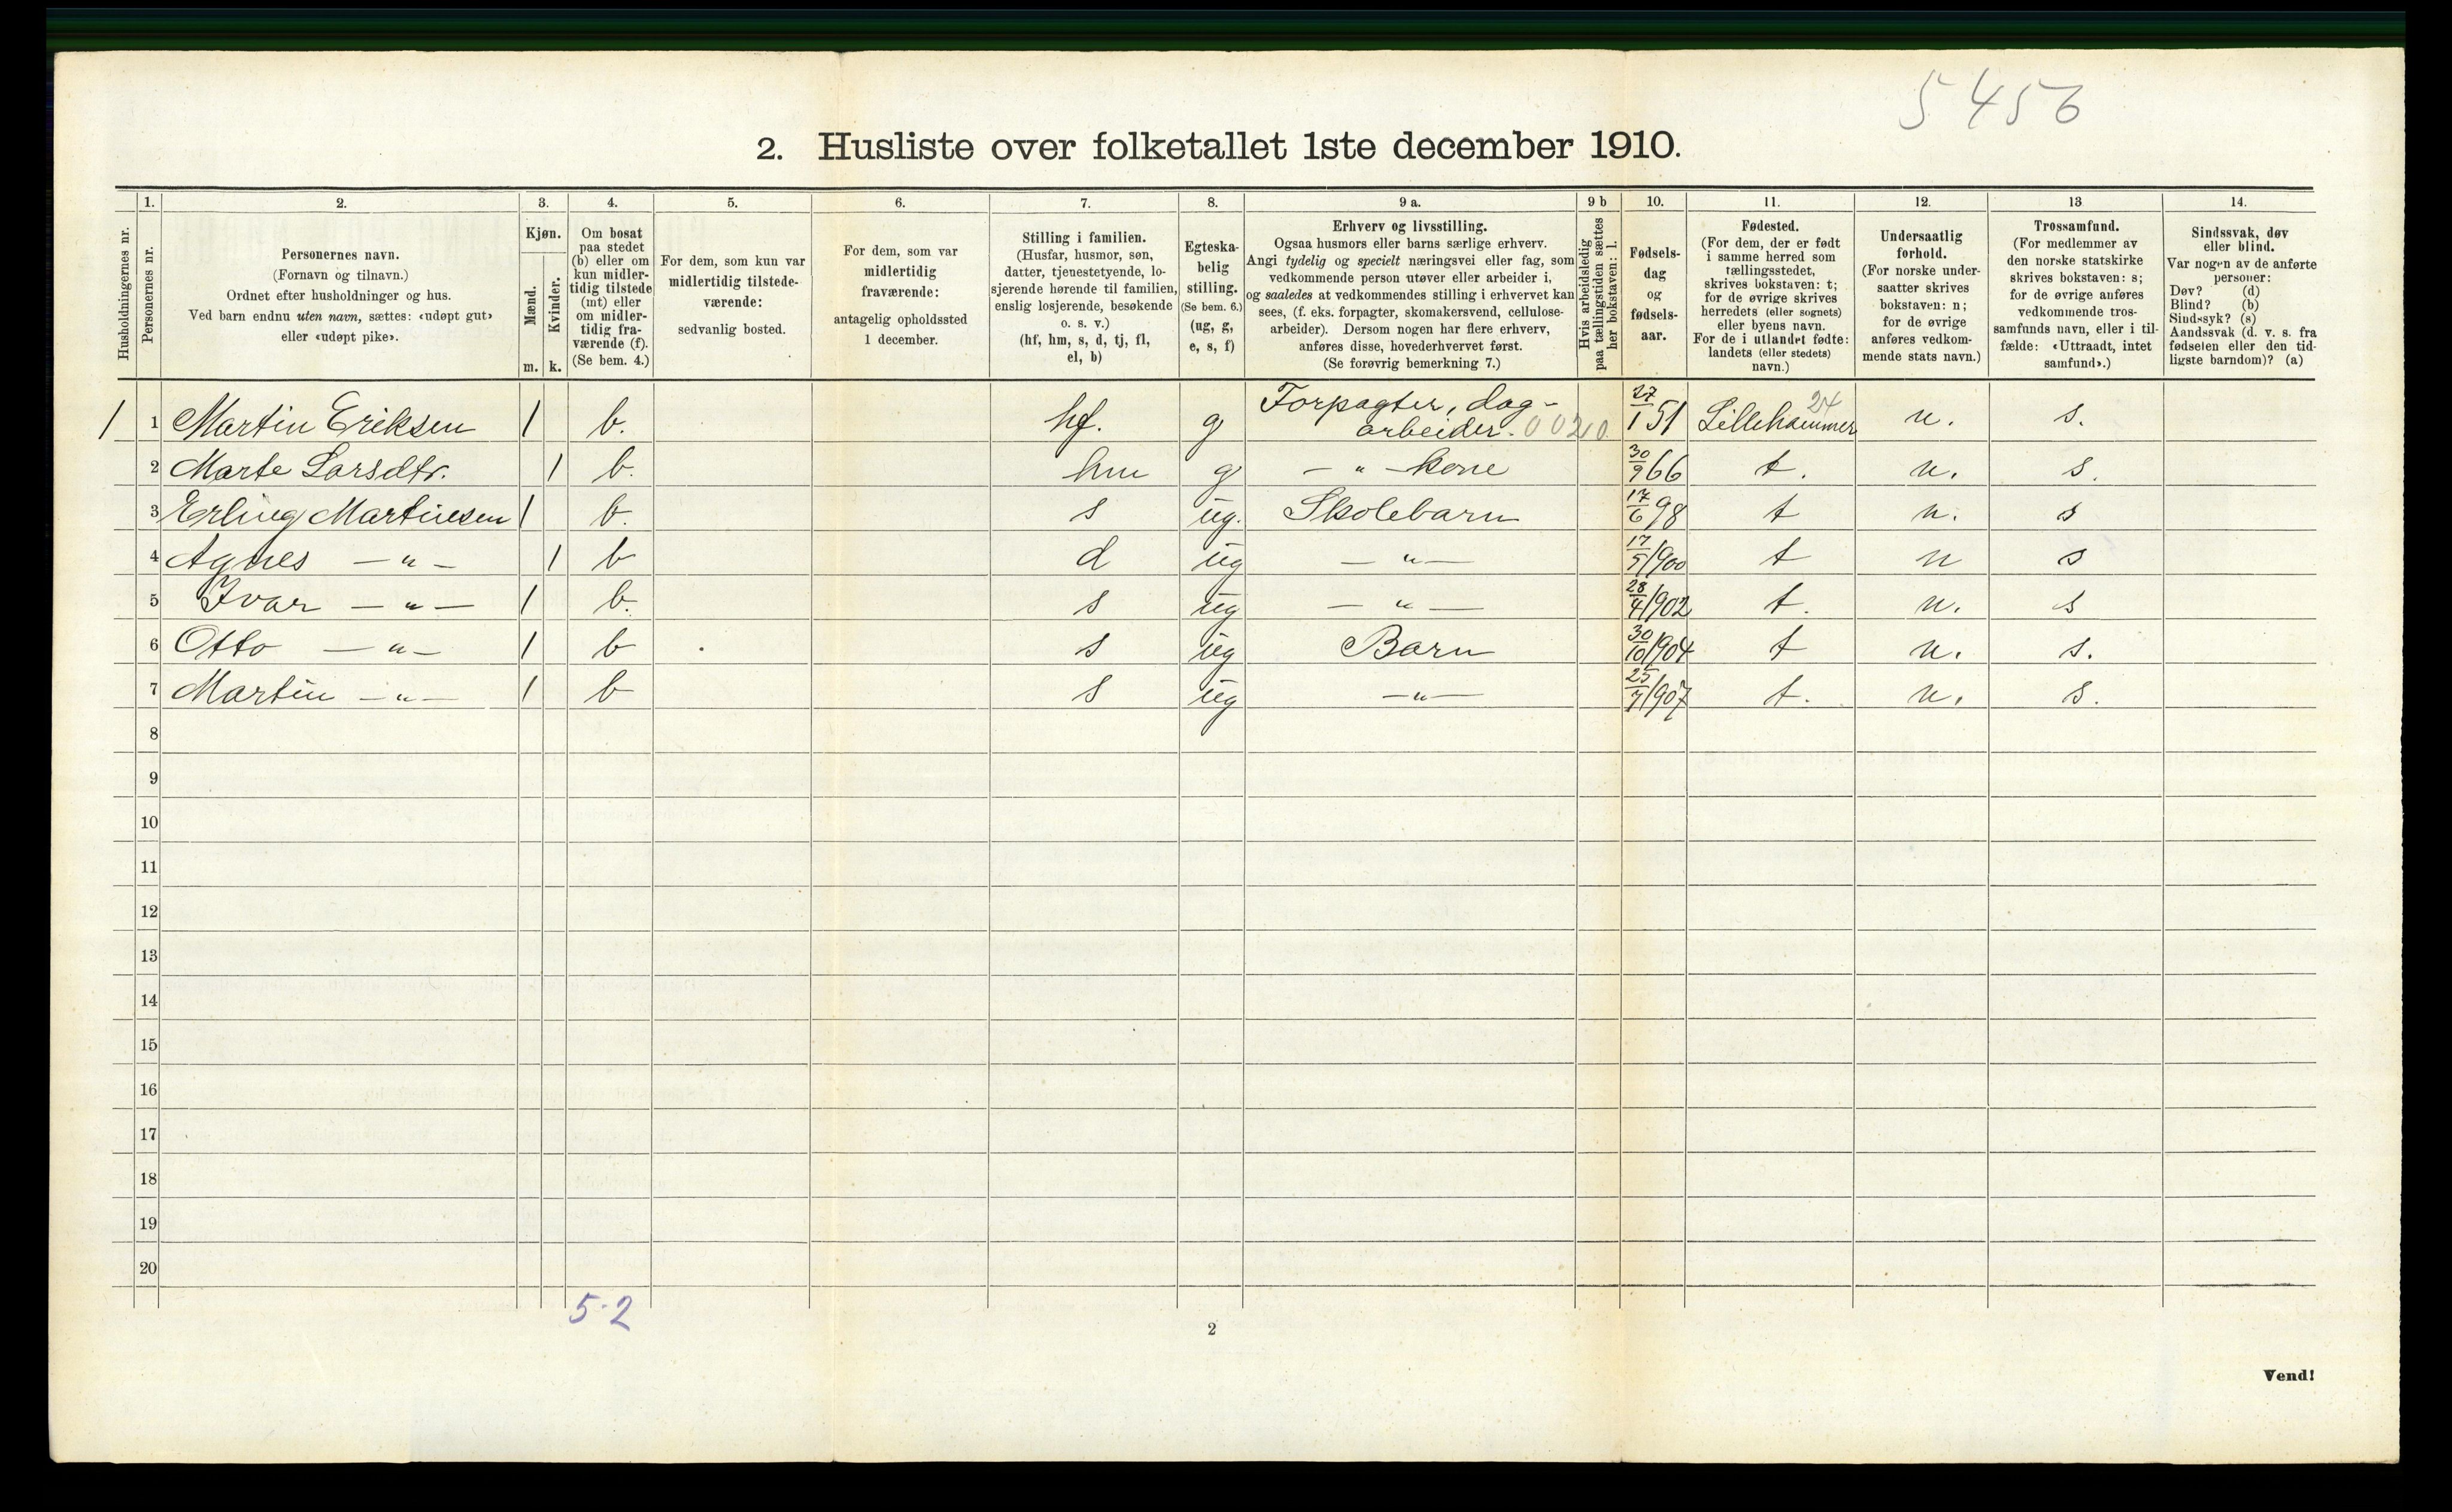 5456
2. Husliste over folketallet 1ste december 1910.
Husholdningernes nr.
1.
Personernes nr.
2.
Personernes navn.
(Fornavn og tilnavn.)
Ordnet efter husholdninger og hus.
Ved barn endnu uten navn, sættes: «udøpt gut»
eller «udøpt pike».
3.
Kjøn.
Mænd.
Kvinder.
m. k.
4.
Om bosat
paa stedet
(b) eller om
kun midler-
tidig tilstede
(mt) eller
om midler-
tidig fra-
værende (f).
(Se bem. 4.)
5.
For dem, som kun var
midlertidig tilstede-
værende:
sedvanlig bosted.
6.
For dem, som var
midlertidig
fraværende:
antagelig opholdssted
1 december.
7.
Stilling i familien.
(Husfar, husmor, søn,
datter, tjenestetyende, lo-
sjerende hørende til familien,
enslig losjerende, besøkende
o. s. v.)
(hf, hm, s, d, tj, fl,
el, b)
8.
Egteska-
belig
stilling.
(Se bem. 6.)
(ug, g,
e, s, f)
9 a.
Erhverv og livsstilling.
Ogsaa husmors eller barns særlige erhverv.
Angi tydelig og specielt næringsvei eller fag, som
vedkommende person utøver eller arbeider i,
og saaledes at vedkommendes stilling i erhvervet kan
sees, (f. eks. forpagter, skomakersvend, cellulose-
arbeider). Dersom nogen har flere erhverv,
anføres disse, hovederhvervet først.
(Se forøvrig bemerkning 7.)
9 b
Hvis arbeidsledig
paa tællingstiden sættes
her bokstaven: l.
10.
Fødsels-
dag
og
fødsels-
aar.
11.
Fødested.
(For dem, der er født
i samme herred som
tællingsstedet,
skrives bokstaven: t;
for de øvrige skrives
herredets (eller sognets)
eller byens navn.
For de i utlandet fødte:
landets (eller stedets)
navn.)
12.
Undersaatlig
forhold.
(For norske under-
saatter skrives
bokstaven: n;
for de øvrige
anføres vedkom-
mende stats navn.)
13
Trossamfund.
(For medlemmer av
den norske statskirke
skrives bokstaven: s;
for de øvrige anføres
vedkommende tros-
samfunds navn, eller i til-
fælde: «Uttraadt, intet
samfund».)
14.
Sindssvak, døv
eller blind.
Var nogen av de anførte
personer:
Døv? (d)
Blind? (b)
Sindssyk? (s)
Aandssvak (d. v. s. fra
fødselen eller den tid-
ligste barndom)? (a)
1 1 Martin Eriksen 1 b. hf. g Forpagter, dag-
arbeider. 0020 27/1 51 Lillehammer 24 n. s.
2 Marte Larsdtr. 1 b. hm g — " — kone 30/9 66 t. n. s.
3 Erling Martinsen 1 b. s ug. Skolebarn 17/6 98 t n. s
4 Agnes — " — 1 b d ug — " — 17/5 1900 t n s
5 Ivar — " — 1 b. s ug — " — 28/4 1902 t. n. s
6 Otto — " — 1 b s ug Barn 30/10 1904 t n. s.
7 Martin — " — 1 b s ug — " — 25/7 1907 t. n. s.
8
9
10
11
12
13
14
15
16
17
18
19
20
5-2
2
Vend!